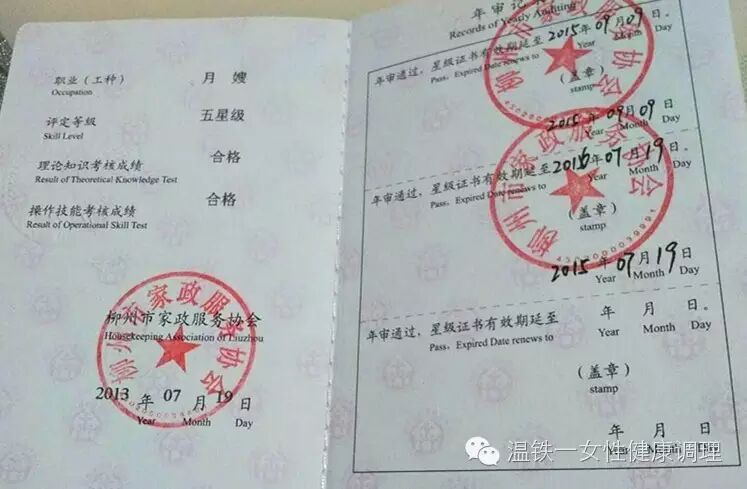 职业（工种） 月 嫂
Occupation
评定等级 五星级
Skill Level
理论知识考核成绩 合格
Result of Theoretical Knowledge Test
操作技能考核成绩 合格
Result of Operational Skill Test
柳州市家政服务协会
柳州市家政服务协会
Housekeeping Association of Liuzhou
2013 年 07 月 19 日
Year Month Day
年审记
Records of Yearly Auditing
柳州市家政服务协会
年审通过，星级证书有效期延至 2015 年 09 月 09 日。
Pass, Expired Date renews to Year Month Day
（盖章）
stamp
2015 年 09 月 09 日
Year Month Day
柳州市家政服务协会
年审通过，星级证书有效期延至 2016 年 07 月 19 日。
Pass, Expired Date renews to Year Month Day
（盖章）
stamp
2015 年 07 月 19 日
Year Month Day
年审通过，星级证书有效期延至 年 月 日。
Pass, Expired Date renews to Year Month Day
（盖章）
stamp
年 月 日
Year Month Day
温铁一女性健康调理